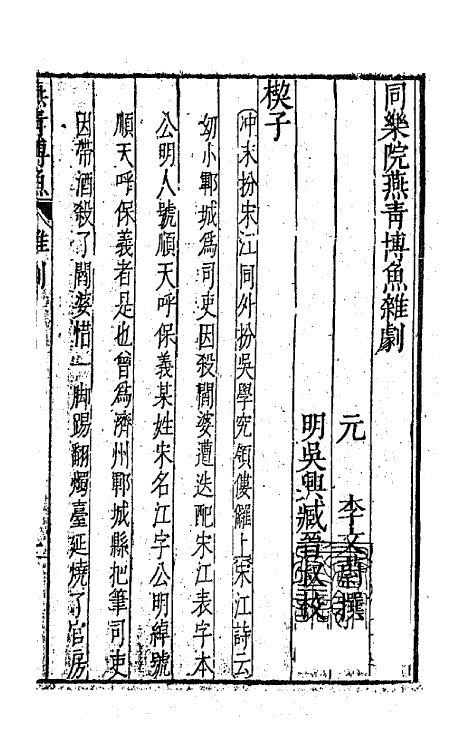 同樂院燕青博魚雜劇
元　李文蔚撰
明吳興臧晉叔校
楔子
沖末扮宋江同外扮吳學究領僂儸上宋江詩云
幼小鄆城爲司吏因殺閻婆遭迭配宋江表字本
公明人號順天呼保義某姓宋名江字公明綽號
順天呼保義者是也曾爲濟州鄆城縣把筆司吏
因帶酒殺了閻婆惜一脚踢翻燭臺延燒了官房
燕青博魚　雜劇